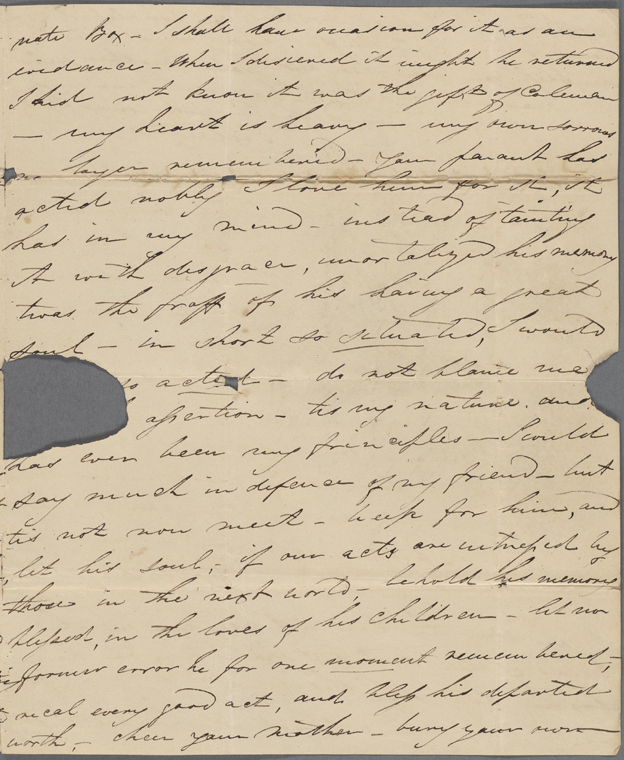 nate Box - I shall have occasion for it as an
evidance - When I disiered it might be returned
I did not know it was the gift of Coleman
- my heart is heavy - my own sorrows
no longer remembered - Your parant has
acted nobly I love him for it, it
has in my mind - instead of tainting
it with disgrace, imortalized his memory
twas the prooff of his having a great
soul - in short so situated, I would
so acted - do not blame me
assertion - tis my nature. and
has ever been my principles - I could
say much in defence of my friend - but
tis not now meet - weep for him, and
let his soul, if our acts are witnessed by
those in the next world, - behold his memory
blessed, in the loves of his children - let no
former error be for one moment remembered, -
recal every good act, and bless his departed
worth, - cheer your mother - bury your own